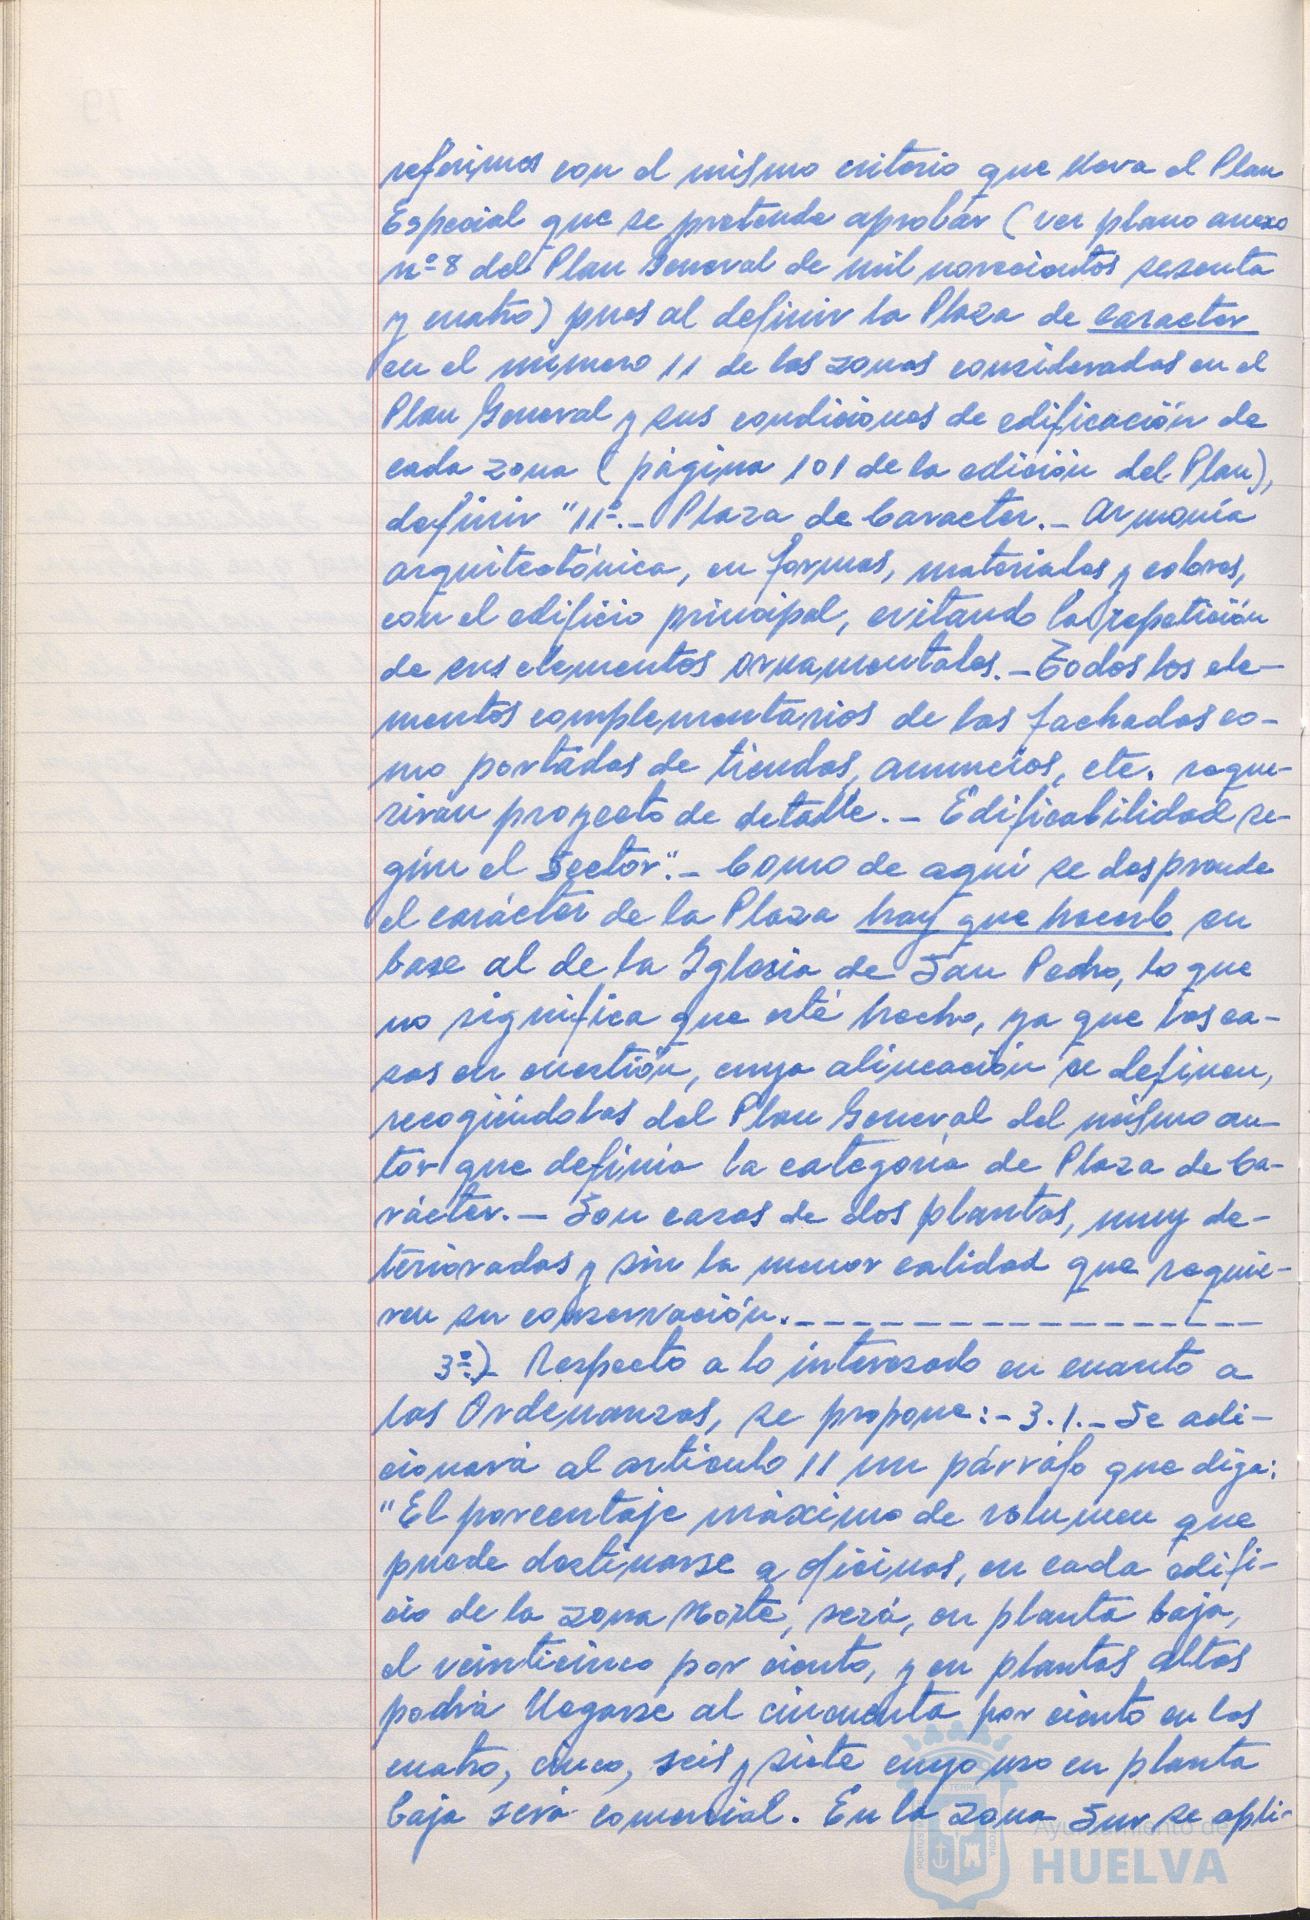 referimos con el mismo criterio que lleva el Plan
Especial que se pretende aprobar (ver plano anexo
nº 8 del Plan General de mil novecientos sesenta
y cuatro) pues al definir la Plaza de caracter
en el número 11 de las zonas consideradas en el
Plan General y sus condiciones de edificación de
cada zona (página 101 de la edición del Plan),
definir "11º.- Plaza de Caracter.- Armonía
arquitectónica, en formas, materiales y colores,
con el edificio principal, evitando la repetición
de sus elementos ornamentales.- Todos los ele-
mentos complementarios de las fachadas co-
mo portadas de tiendas, anuncios, etc. reque-
rirán proyecto de detalle.- Edificabilidad se-
gún el Sector".- Como de aquí se desprende
el carácter de la Plaza hay que hacerlo en
base al de la Iglesia de San Pedro, lo que
no significa que esté hecho, ya que las ca-
sas en cuestión, cuya alineación se definen,
recogiéndolas del Plan General del mismo au-
tor que definía la categoría de Plaza de Ca-
rácter.- Son casas de dos plantas, muy de-
terioradas y sin la menor calidad que requie-
ren su conservación.- - - - - - - - - - - - - - - -
3º.)- Respecto a lo interesado en cuanto a
las Ordenanzas, se propone:- 3.1.- Se adi-
cionará al artículo 11 un párrafo que diga:
"El porcentaje máximo de volumen que
puede destinarse a oficinas, en cada edifi-
cio de la zona Norte, será, en planta baja,
el veinticinco por ciento, y en plantas altas
podrá llegarse al cincuenta por ciento en los
cuatro, cinco, seis y siete cuyo uso en planta
baja será comercial. En la zona Sur se apli-
Ayuntamiento de
HUELVA